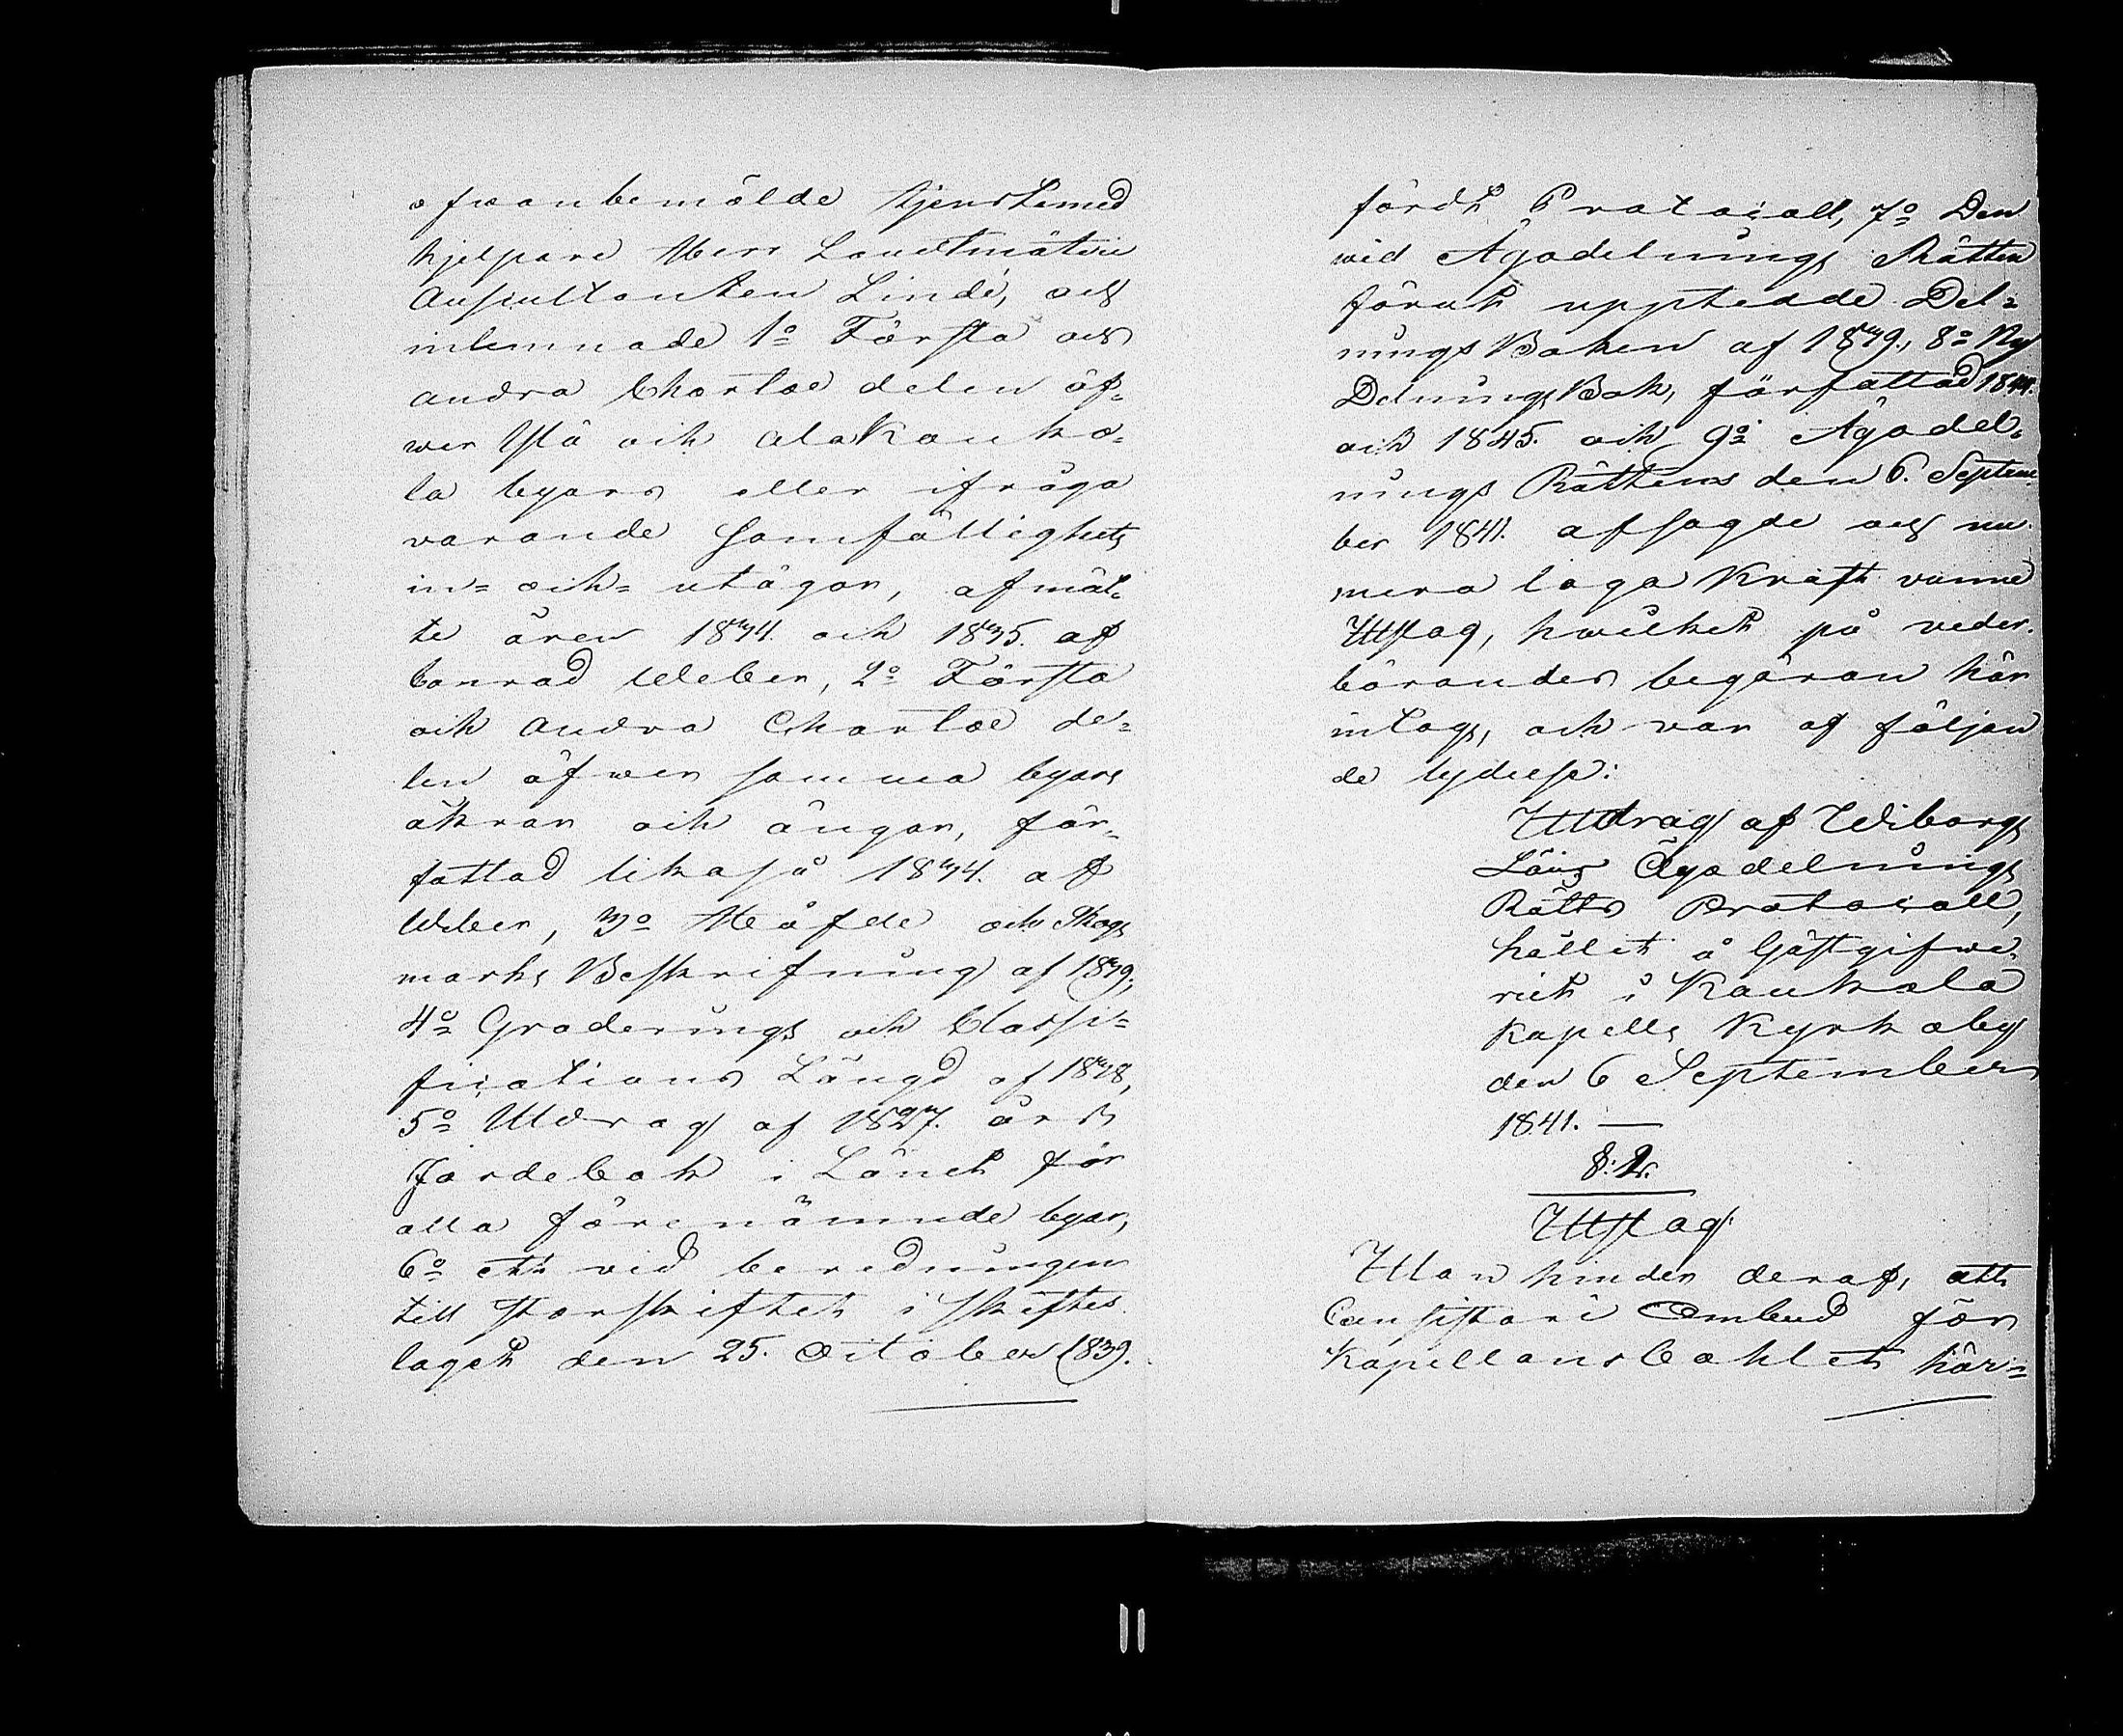 ofwanbemälde tjenstemed
hjelpare Herr Landtmäteri
Auscultanten Lindé, och
inlemnade 1o Första och
andra Chartæ delen öf-
wer Ylä och Ala Kauko-
la byars eller ifråga
varande Samfällighets
in- och utägor, afmät-
te åren 1834. och 1835. af
Conrad Weber, 2o Första
och andra Chartæ de-
len öfwer samma byars
åkrar och ängar, för-
fattad likaså 1834. af
Weber, 3o Häfde och Skogs
marks Beskrifning af 1839,
4o Graderings och Classi-
fications Längd af 1838,
5o Utdrag af 1827. års
Jordebok i Länet för
alla förenämnde byar,
6o ett vid beredningen
till Storskiftet i Skiftes
laget den 25. October 1839.
fördt Protocoll, 7o Den
wid Ägodelnings Rätten
förut uppteedde Del-
nings Boken af 1839., 8o Ny
Delnings Bok, författad 1844.
och 1845. och 9o Ägodel-
nings Rättens den 6. Septem-
ber 1841. afsagde och nu
mera laga Kraft vunne
Utslag, hwilket på veder-
börandes begäran här
intogs, och var af följan
de lydelse:
Utdrag af Wiborgs
Läns Ägodelnings
Rätts Protocoll,
hållit å Gästgifwe-
riet i Kaukola
Kapells Kyrkoby
den 6 September
1841. —
§: 2.
Utslag:
Utan hinder deraf, att
Consistorii Ombud för
Kapellansbohlet här-